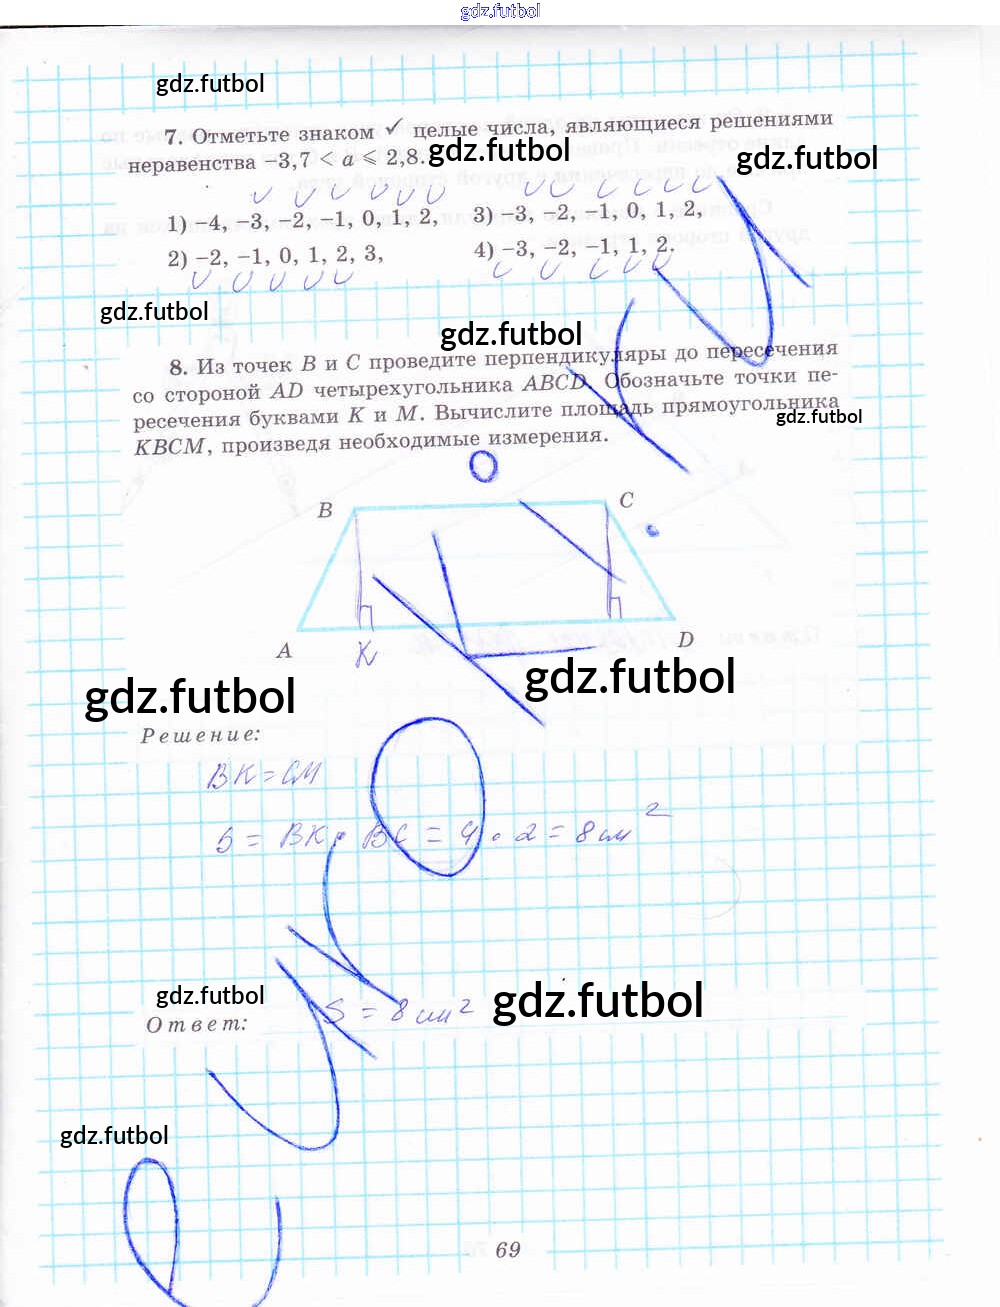 gdz.futbol
gdz.futbol
7. Отметьте знаком ✓ целые числа, являющиеся решениями
неравенства −3,7 < a ⩽ 2,8.
gdz.futbol
gdz.futbol
1) −4, −3, −2, −1, 0, 1, 2,
3) −3, −2, −1, 0, 1, 2,
2) −2, −1, 0, 1, 2, 3,
4) −3, −2, −1, 1, 2.
gdz.futbol
gdz.futbol
8. Из точек B и C проведите перпендикуляры до пересечения
со стороной AD четырехугольника ABCD. Обозначьте точки пе-
ресечения буквами K и M. Вычислите площадь прямоугольника
KBCM, произведя необходимые измерения.
gdz.futbol
B
C
A
K
D
gdz.futbol
gdz.futbol
Решение:
BK = CM
S = BK · BC = 4 · 2 = 8 см²
gdz.futbol
gdz.futbol
Ответ:
S = 8 см²
gdz.futbol
69